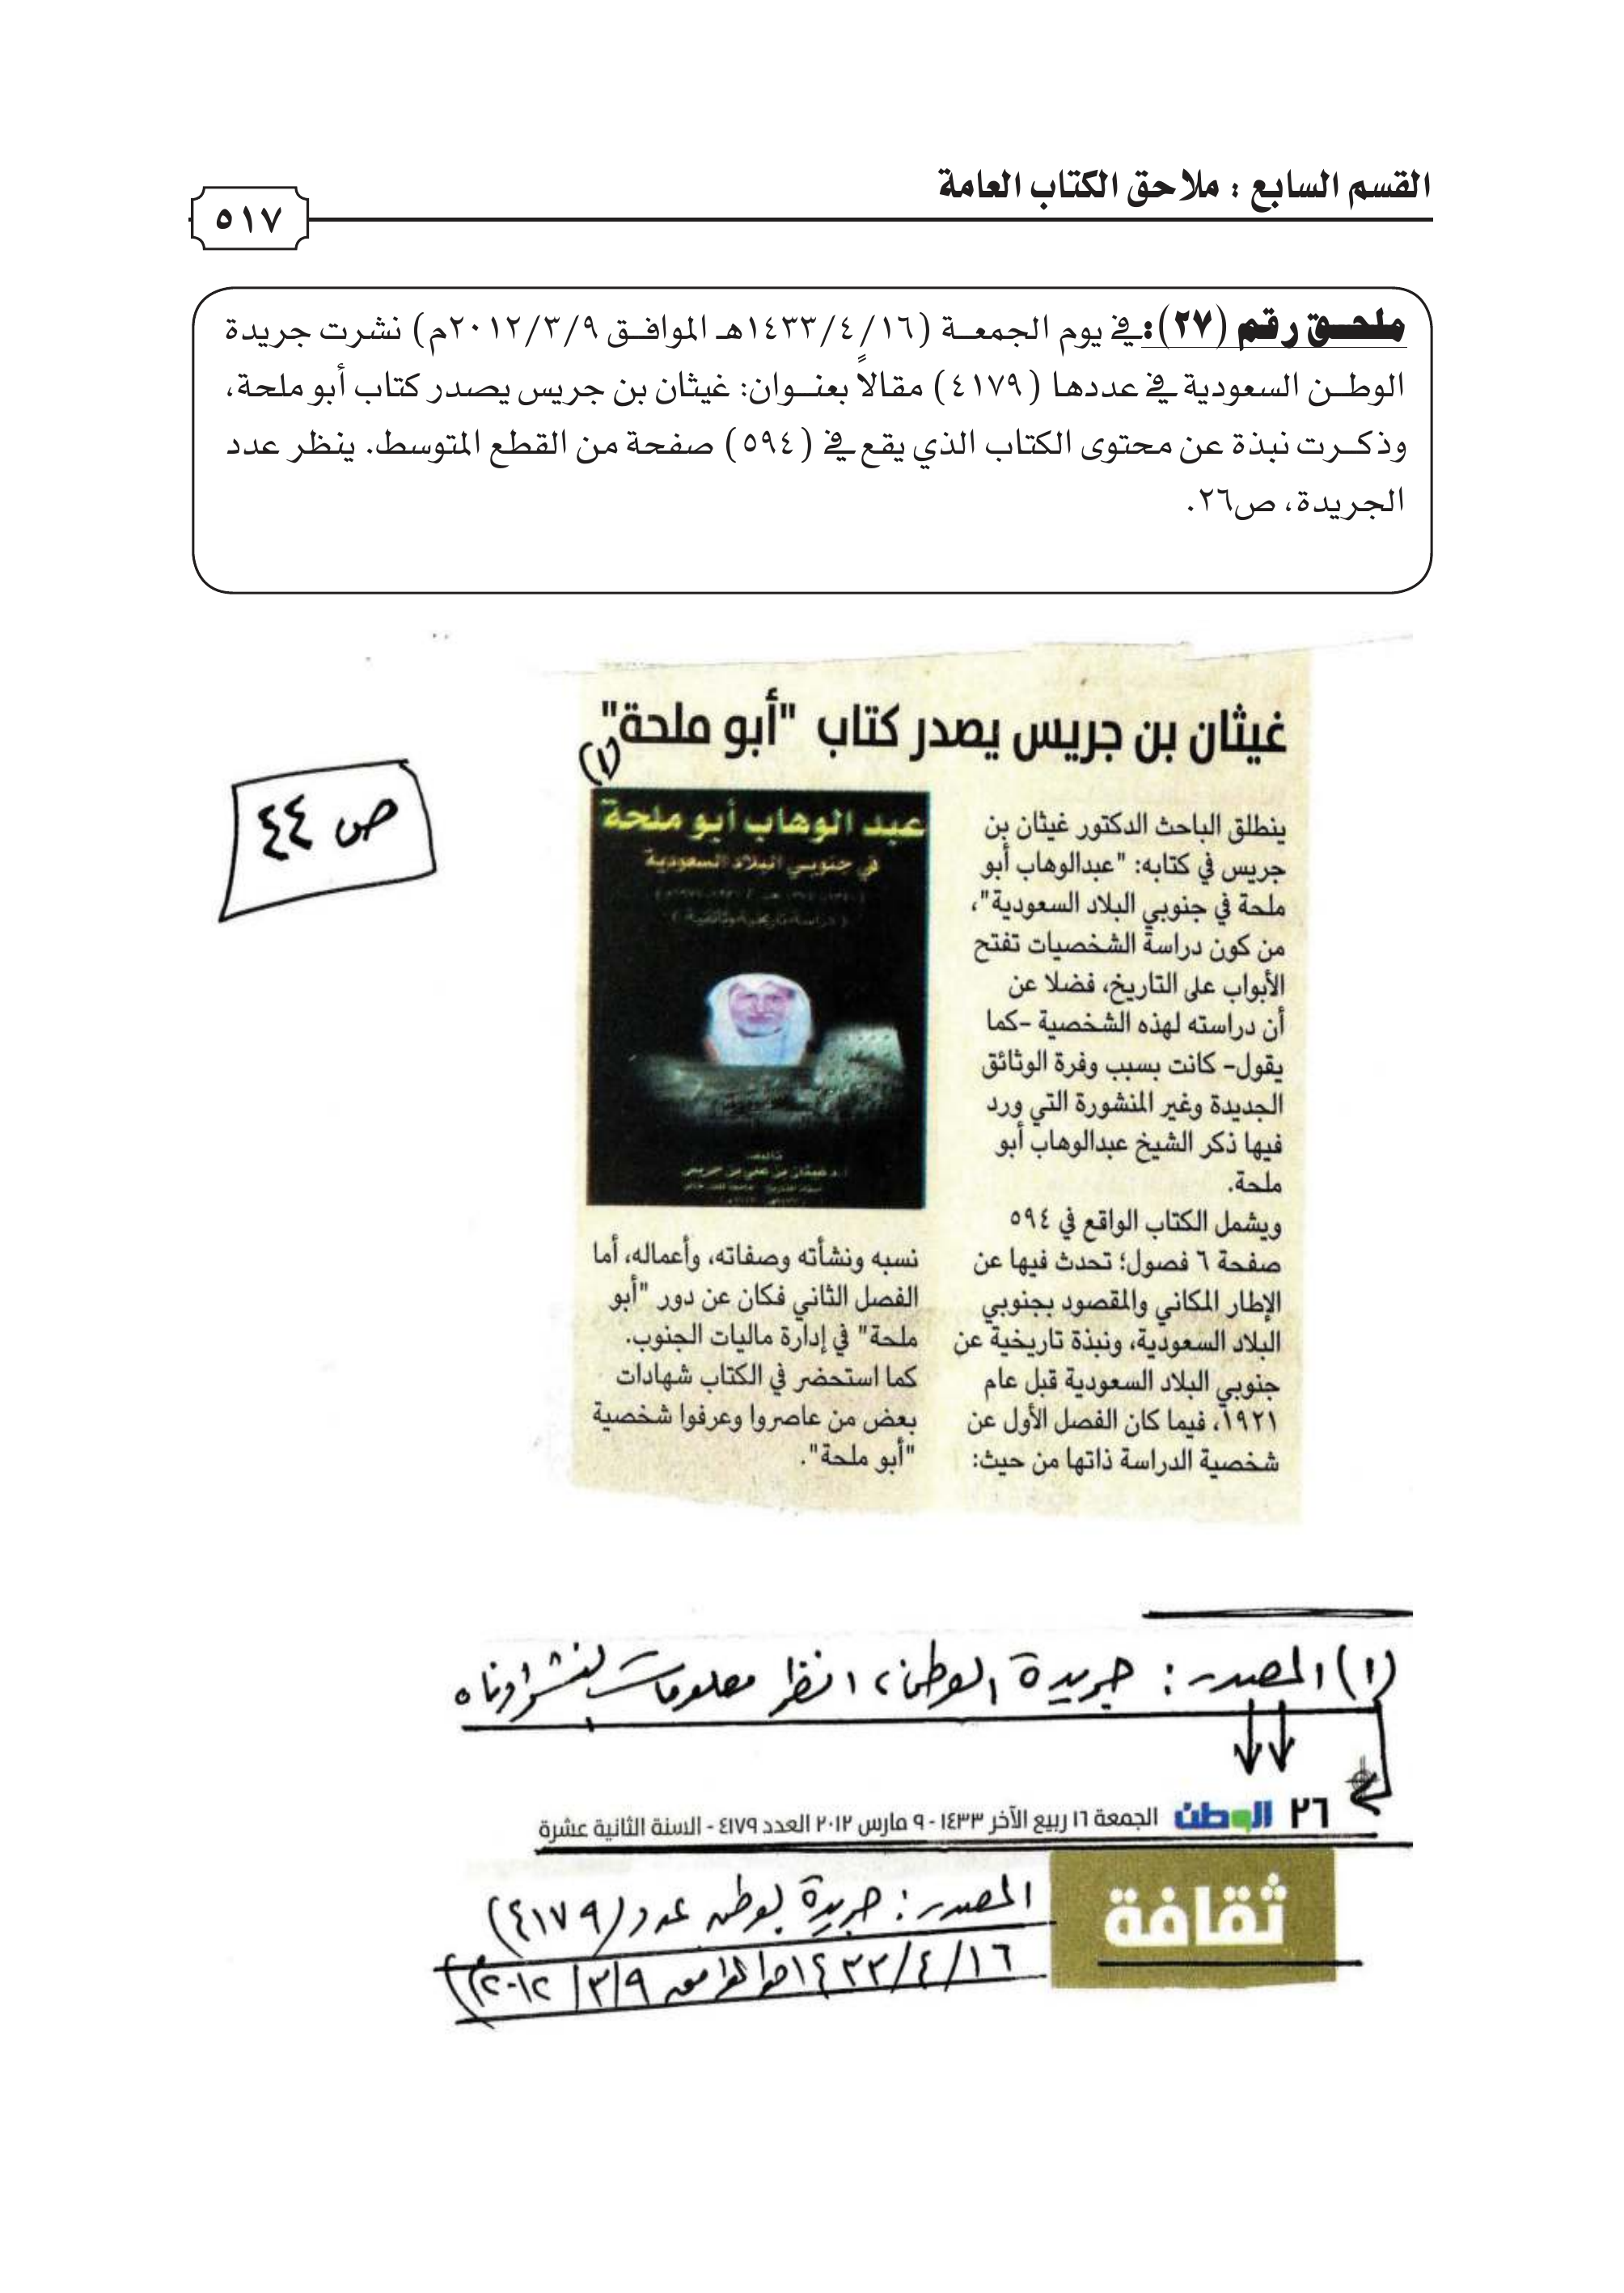 القسم السابع : ملاحق الكتاب العامة
٥١٧
ملحــق رقم (٢٧): في يوم الجمعــة (١٤٣٣/٤/١٦هـ الموافــق ٢٠١٢/٣/٩م) نشرت جريدة
الوطــن السعودية في عددها (٤١٧٩) مقالاً بعنــوان: غيثان بن جريس يصدر كتاب أبو ملحة،
وذكــرت نبذة عن محتوى الكتاب الذي يقع في (٥٩٤) صفحة من القطع المتوسط. ينظر عدد
الجريدة، ص٢٦.
غيثان بن جريس يصدر كتاب "أبو ملحة"
(١)
ص ٤٤
ينطلق الباحث الدكتور غيثان بن
جريس في كتابه: "عبدالوهاب أبو
ملحة في جنوبي البلاد السعودية"،
من كون دراسة الشخصيات تفتح
الأبواب على التاريخ، فضلا عن
أن دراسته لهذه الشخصية -كما
يقول- كانت بسبب وفرة الوثائق
الجديدة وغير المنشورة التي ورد
فيها ذكر الشيخ عبدالوهاب أبو
ملحة.
ويشمل الكتاب الواقع في ٥٩٤
صفحة ٦ فصول؛ تحدث فيها عن
الإطار المكاني والمقصود بجنوبي
البلاد السعودية، ونبذة تاريخية عن
جنوبي البلاد السعودية قبل عام
١٩٢١، فيما كان الفصل الأول عن
شخصية الدراسة ذاتها من حيث:
عبد الوهاب أبو ملحة
في جنوبي البلاد السعودية
(دراسة تاريخية وثائقية)
تأليف
أ.د. غيثان بن علي بن جريس
نسبه ونشأته وصفاته، وأعماله، أما
الفصل الثاني فكان عن دور "أبو
ملحة" في إدارة ماليات الجنوب.
كما استحضر في الكتاب شهادات
بعض من عاصروا وعرفوا شخصية
"أبو ملحة".
(١) المصدر: جريدة الوطن، انظر معلومات النشر أدناه
٢٦ الوطن الجمعة ١٦ ربيع الآخر ١٤٣٣ - ٩ مارس ٢٠١٢ العدد ٤١٧٩ - السنة الثانية عشرة
ثقافة
المصدر: جريدة الوطن عدد (٤١٧٩)
١٤٣٣/٤/١٦هـ الموافق ٢٠١٢/٣/٩م)